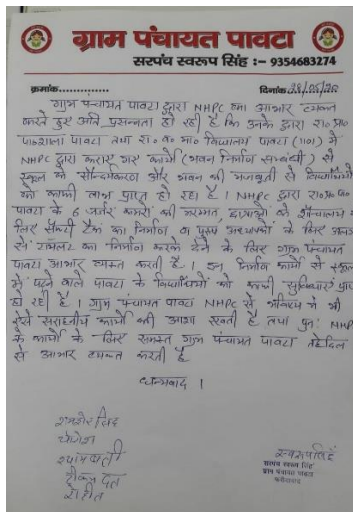 ग्राम पंचायत पावटा
सरपंच स्वरूप सिंह :- 9354683274
क्रमांक.............. दिनांक
ग्राम पंचायत पावटा द्वारा NHPC का आभार व्यक्त
करते हुए अति प्रसन्नता हो रही है कि उनके द्वारा रा० प्रा०
पा०शाला पावटा तथा रा० व० मा० विद्यालय पावटा (1101) में
NHPC द्वारा कराए गए कार्यो (भवन निर्माण सम्बंधी) से
स्कूल के सौन्दर्यकरण और भवन की मजबूती से विद्यार्थियों
को काफी लाभ प्राप्त हो रहा है । NHPC द्वारा रा० प्रा० पा०
पावटा के 6 जर्जर कमरों की मरम्मत छात्राओं के शौचालय के
लिए सेप्टी टैंक का निर्माण व पुरुष अध्यापकों के लिए अलग
से टायलेट का निर्माण करके देने के लिए ग्राम पंचायत
पावटा आभार व्यक्त करती है । इन निर्माण कार्यो से स्कूल
में पढ़ने वाले पावटा के विद्यार्थियों को काफी सुविधाएं प्राप्त
हो रही है । ग्राम पंचायत पावटा NHPC से भविष्य में भी
ऐसे सराहनीय कार्यो की आशा रखती है तथा पुनः NHPC
के कार्यो के लिए समस्त ग्राम पंचायत पावटा तहेदिल
से आभार व्यक्त करती है
धन्यवाद ।
शमशेर सिंह
योगेश
श्यामवती
टीकम दत्त
रोहित
स्वरूप सिंह
सरपंच स्वरूप सिंह
ग्राम पंचायत पावटा
फरीदाबाद